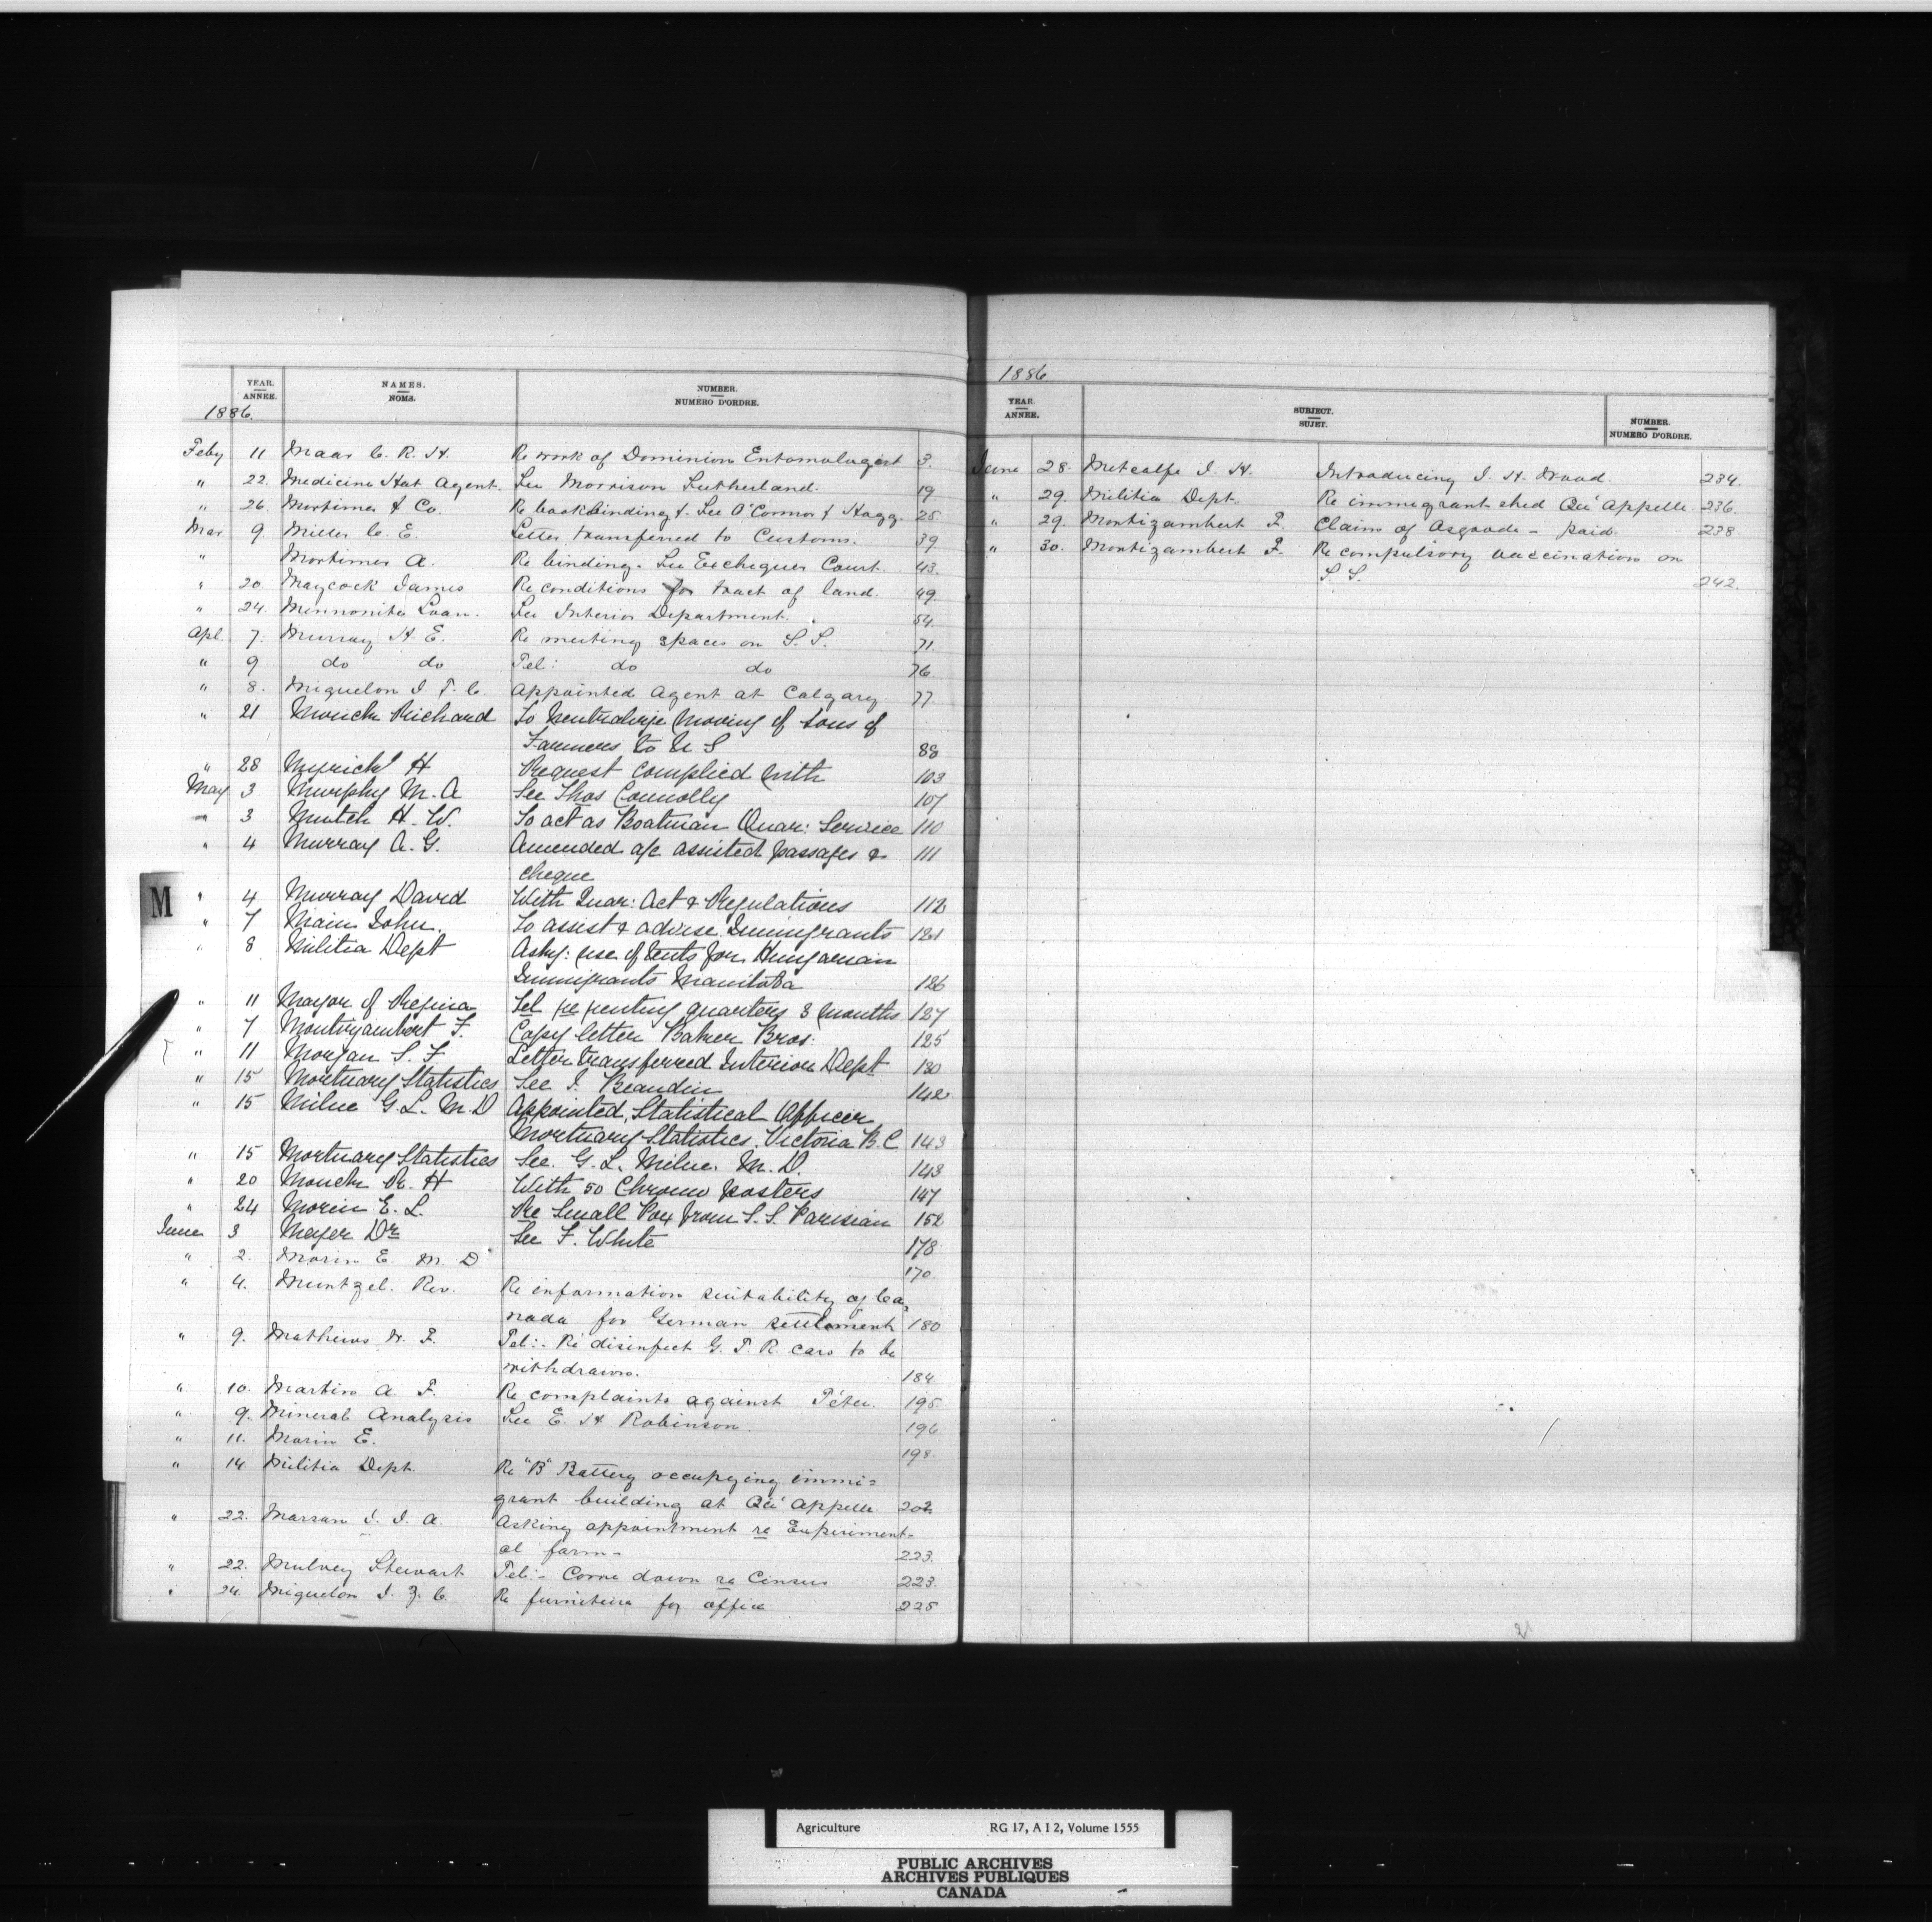 YEAR. ANNÉE. NAMES. NOMS. NUMBER. NUMERO D'ORDRE.
1886.
Feby 11 Maar C. R. H. Re work of Dominion Entomologist 3.
" 22. Medicine Hat Agent. See Morrison Sutherland. 19
" 26. Mortimer & Co. Re bookbinding &. See O'Connor & Hogg. 25.
Mar. 9. Miller C. E. Letter transferred to Customs. 39
" Mortimer A. Re binding. See Exchequer Court. 43.
" 20. Maycock James Re conditions for tract of land. 49.
" 24. Mennonite Loan. See Interior Department. 54.
Apl. 7. Murray H. E. Re meeting spaces on S. S. 71.
" 9 do do Tel: do do 76.
" 8. Miquelon J. T. C. Appointed Agent at Calgary. 77
" 21 Monck Richard To Neutralize moving of sons of
Farmers to U S 88
" 28 Myrick H Request complied with 103
May 3 Murphy M. A See Thos Connolly 107
" 3 Mutch H. W. To act as Boatman Quar: Service 110
" 4 Murray A. G. Amended a/c assisted passages & 111
cheque
M
" 4 Murray David With Quar: Act & Regulations 112
" 7 Main John. To assist & advise Immigrants 121
" 8 Militia Dept Askg: use of tents for Hungarian
Immigrants Manitoba 126
" 11 Mayor of Regina Tel re renting quarters 3 months 127
" 7 Montizambert F. Copy letter Baker Bros: 125
" 11 Morgan S. F. Letter transferred Interior Dept 130
" 15 Mortuary Statistics See J. Beaudin 142
" 15 Milne G. L. M. D Appointed Statistical Officer
Mortuary Statistics. Victoria B. C 143
" 15 Mortuary Statistics See. G. L. Milne. M. D. 143
" 20 Monck R. H With 50 Chromo posters 147
" 24 Morin E. L. Re Small Pox from S. S. Parisian 152
June 3 Meyer Dr See F. White 178
" 2. Morin E. M. D 170.
" 4. Muntzel. Rev. Re information suitability of Ca,
nada for German settlement 180
" 9. Mathews W. F. Tel:- Re disinfect G. T. R. cars to be
withdrawn. 184.
" 10. Martin A. F. Re complaints against Têtu. 195.
" 9. Mineral Analysis See E. H Robinson. 196
" 11. Morin E. 198.
" 14 Militia Dept. Re "B" Battery occupying immi=
grant building at Qu'Appelle. 202
" 22. Marsan J. J. A. Asking appointment re Experiment-
al farm- 223.
" 22. Mulvey Stewart Tel:- Come down re Census 223.
" 24. Miquelon J. Z. C. Re furniture for office 225
1886
YEAR. ANNÉE. SUBJECT. SUJET. NUMBER. NUMERO D'ORDRE.
June 28. Metcalfe J. H. Introducing J. H. Wood. 234.
" 29. Militia Dept. Re immigrant shed Qu'Appelle. 236.
" 29. Montizambert F. Claim of Osgoode - paid. 238.
" 30. Montizambert F. Re compulsory vaccination on
S. S. 242.
Agriculture RG 17, A I 2, Volume 1555
PUBLIC ARCHIVES
ARCHIVES PUBLIQUES
CANADA